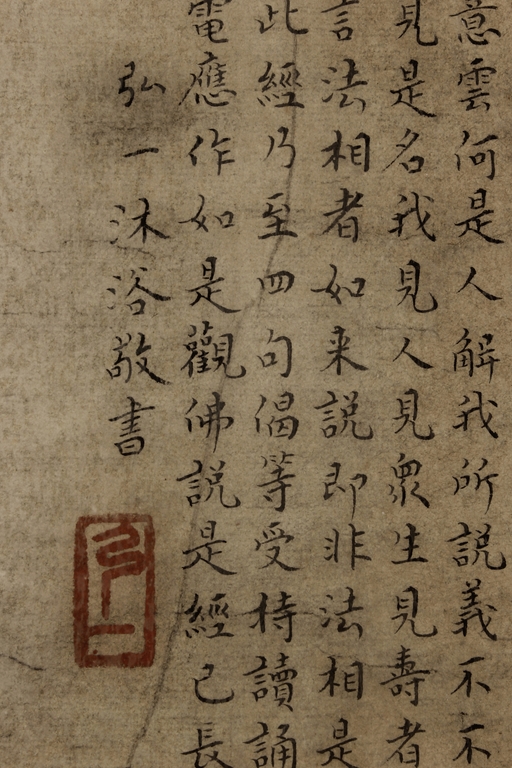 意雲何是人解我所説義不不
見是名我見人見衆生見壽者
言法相者如来説即非法相是
此經乃至四句偈等受持讀誦
電應作如是觀佛説是經已長
弘一沐浴敬書
弘一